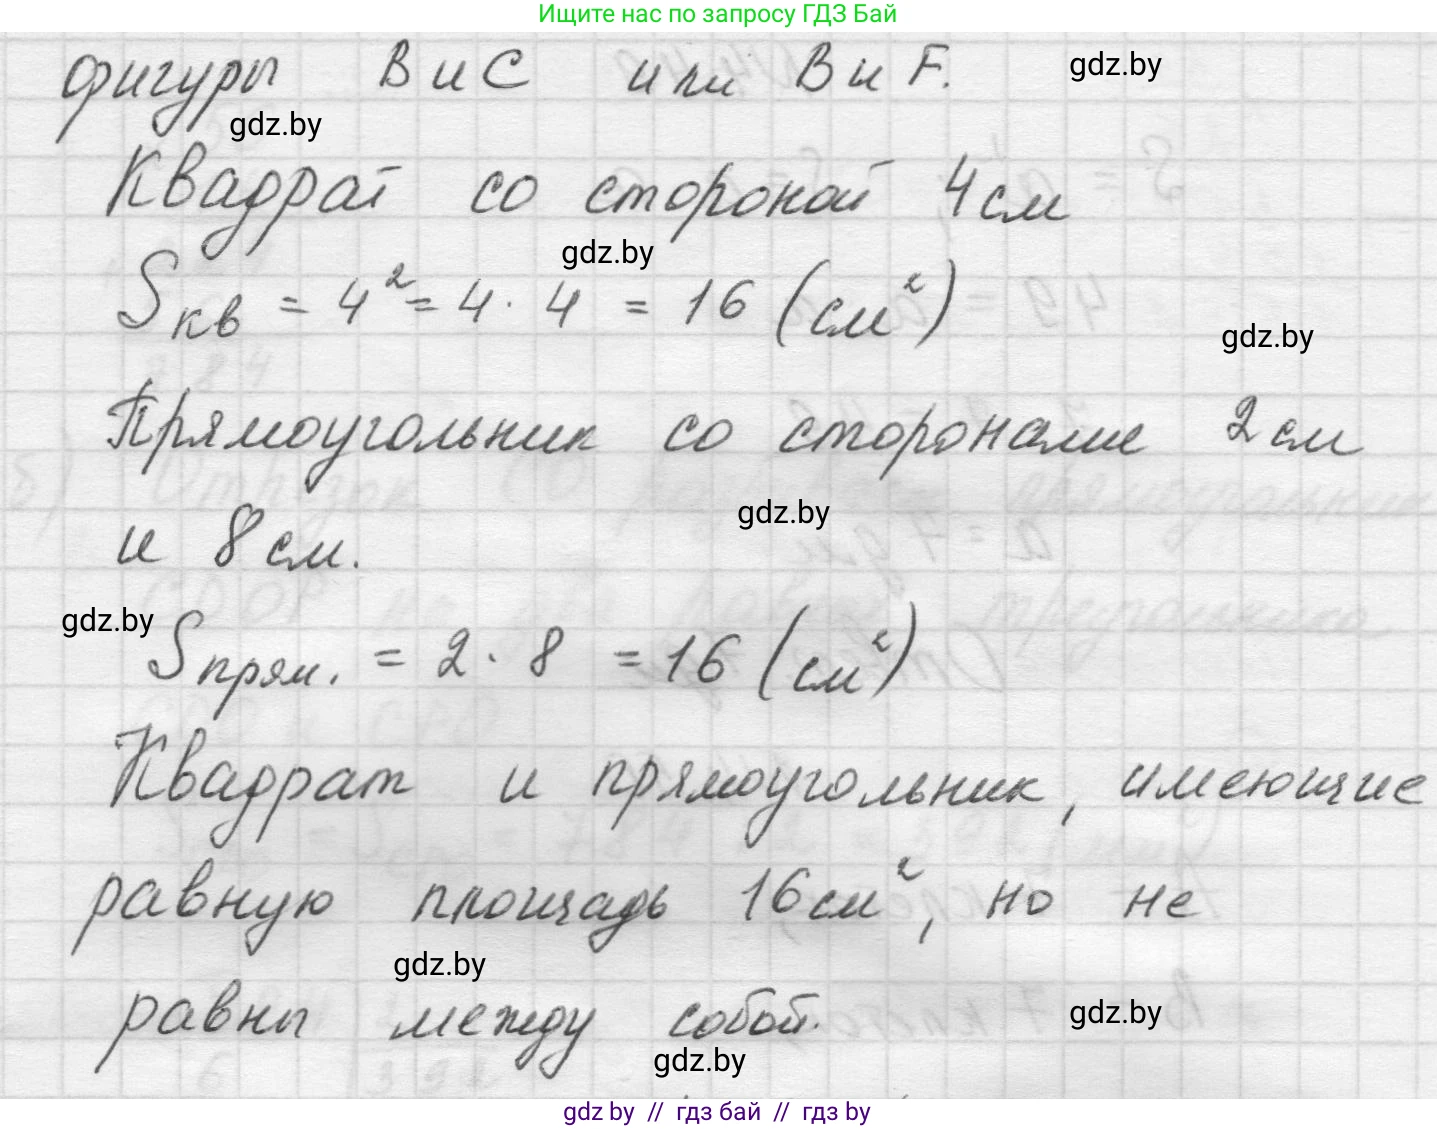 Ищите нас по запросу ГДЗ Бай
фигуры В и С или В и F.
gdz.by
gdz.by
Квадрат со стороной 4 см
gdz.by
Sкв = 4² = 4 · 4 = 16 (см²)
gdz.by
Прямоугольник со сторонами 2 см
gdz.by
и 8 см.
gdz.by
Sпрям. = 2 · 8 = 16 (см²)
Квадрат и прямоугольник, имеющие
равную площадь 16 см², но не
gdz.by
равны между собой.
gdz.by
gdz.by
gdz by // гдз бай // гдз by